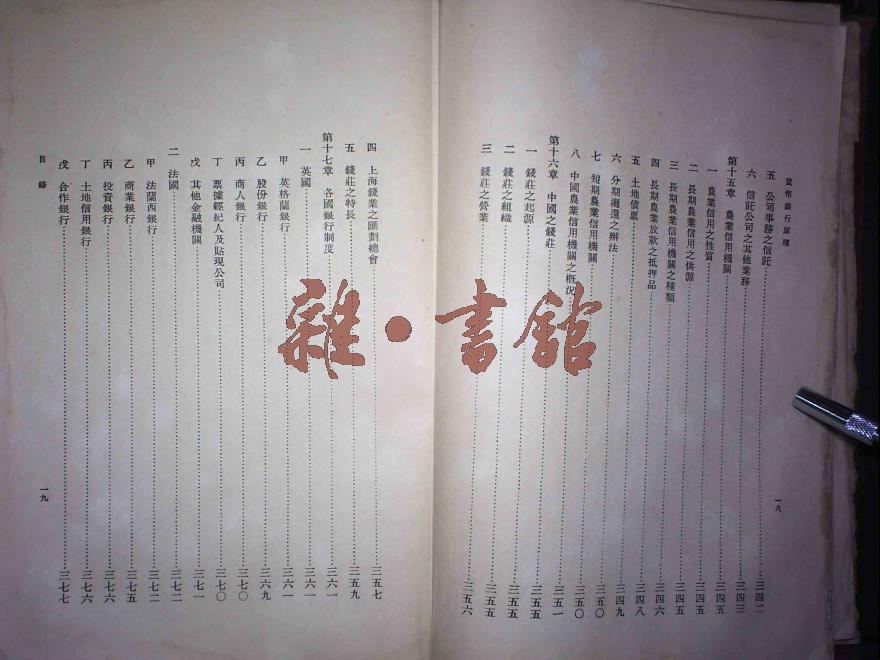 貨幣銀行原理
五 公司事務之信託……三四二
六 信託公司之其他業務……三四三
第十五章 農業信用機關……三四五
一 農業信用之性質……三四五
二 長期農業信用之供源……三四五
三 長期農業信用機關之種類……三四六
四 長期農業放款之抵押品……三四八
五 土地債票……三四九
六 分期攤還之辦法……三五〇
七 短期農業信用機關……三五〇
八 中國農業信用機關之概況……三五一
第十六章 中國之錢莊……三五五
一 錢莊之起源……三五五
二 錢莊之組織……三五五
三 錢莊之營業……三五六
一八
四 上海錢業之匯劃總會……三五七
五 錢莊之特長……三五九
第十七章 各國銀行制度……三六一
一 英國……三六一
甲 英格蘭銀行……三六一
乙 股份銀行……三六九
丙 商人銀行……三七〇
丁 票據經紀人及貼現公司……三七〇
戊 其他金融機關……三七一
二 法國……三七二
甲 法蘭西銀行……三七二
乙 商業銀行……三七五
丙 投資銀行……三七六
丁 土地信用銀行……三七六
戊 合作銀行……三七七
目錄
一九
雜·書館